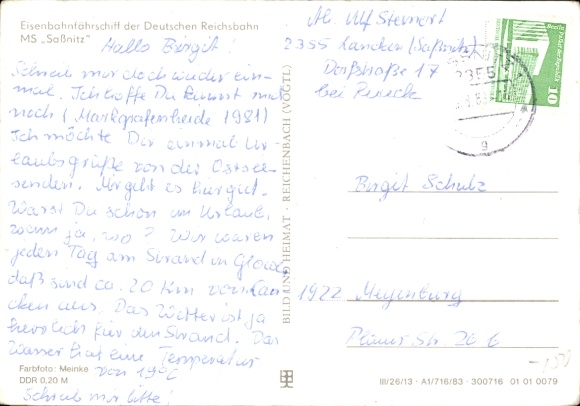 Eisenbahnfährschiff der Deutschen Reichsbahn
MS „Saßnitz"
Hallo Birgit!
Schreib mir doch wieder ein-
mal. Ich hoffe Du kennst mich
noch (Markgrafenheide 1981)
Ich möchte Dir einmal Ur-
laubsgrüße von der Ostsee
senden. Mir geht es hier gut.
Warst Du schon im Urlaub,
wenn ja, wo? Wir waren
jeden Tag am Strand in Glowe
daß sind ca. 20 km von Lan-
cken aus. Das Wetter ist ja
herrlich für den Strand. Das
Wasser hat eine Temperatur
von 19°C
Schreib mir bitte!
Farbfoto: Meinke
DDR 0,20 M
BILD UND HEIMAT · REICHENBACH (VOGTL)
Abs. Ulf Steinort
2355 Lancken (Saßnitz)
Dorfstraße 17
bei
10
2355
g
Birgit Schulz
1922 Meyenburg
Str. 26 b
III/26/13 · A1/716/83 · 300716 01 01 0079
1,50